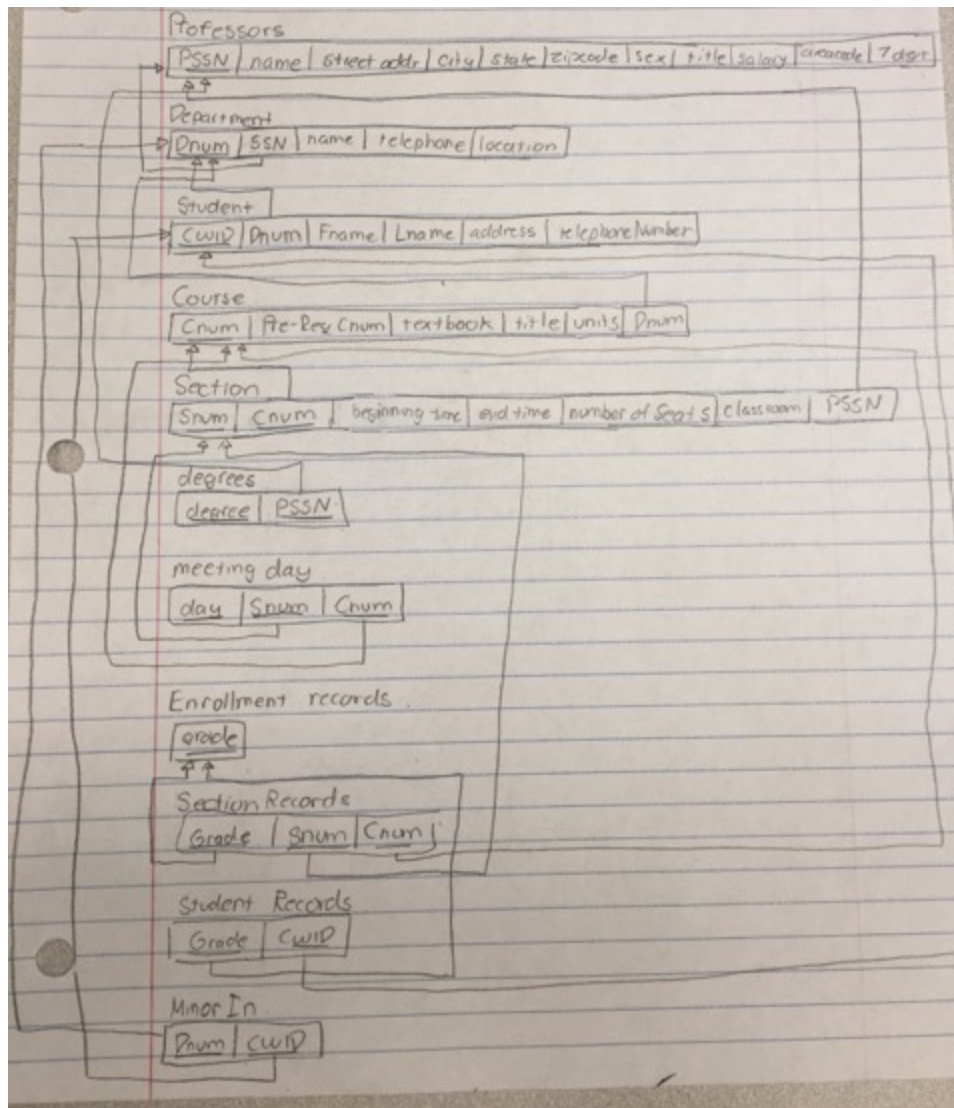 Professors
PSSN name street addr City state zipcode sex title salary areacode 7 digit
Department
Dnum SSN name telephone location
Student
CWID Dnum Fname Lname address telephone Number
Course
Cnum Pre-Req Cnum textbook title units Dnum
Section
Snum Cnum beginning time end time number of Seats classroom PSSN
degrees
degree PSSN
meeting day
day Snum Cnum
Enrollment records
grade
Section Records
Grade Snum Cnum
Student Records
Grade CWID
Minor In
Dnum CWID